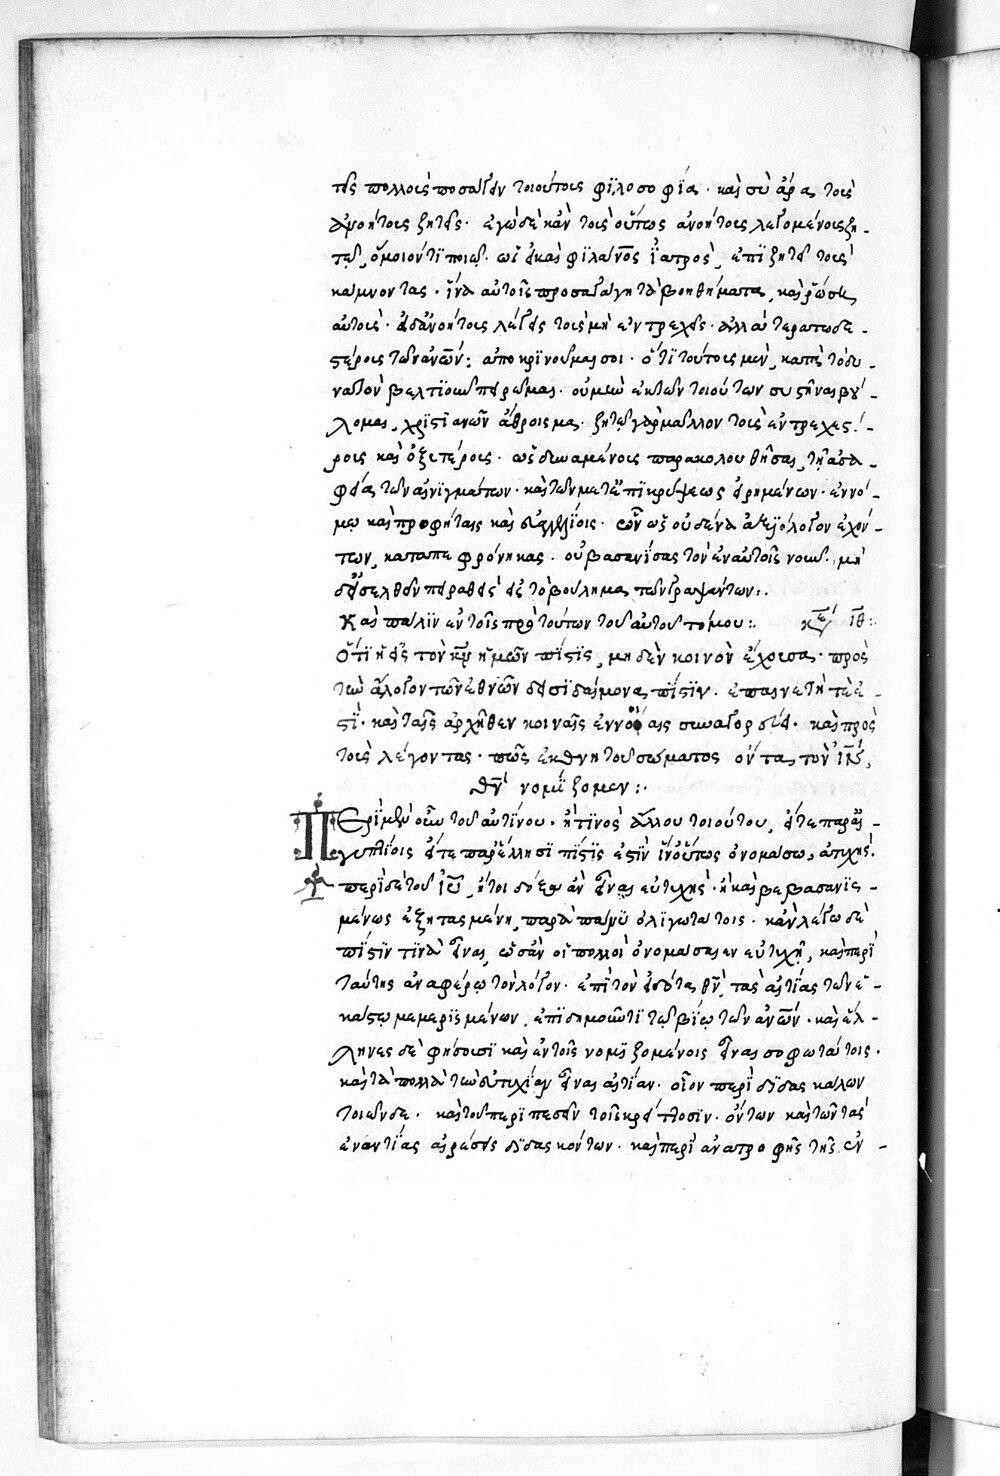 τες πολλοῖς ποσαγεῖν τοιούτοις φϊλοσοφΐα· καὶ σὺ ἄρα τοῖς
ἀνοήτοις ζητεῖς· ἐγὼ δὲ κἂν τοῖς οὕτως ἀνοήτοις λεγομένοις ζη-
τῶ, ὅμοιόν τϊ ποιῶ. ὡς εἰ καὶ φϊλάνος ἰατρὸς, ἐπϊζητῶ τοὺς
κάμνοντας· ἵνα αὐτοῖς προσαγάγη τὰ βοηθήματα, καὶ ῥώση
αὐτούς· εἰ δ' ἀνοήτοις λέγεις τοὺς μὴ ἐντρεχεῖς· ἀλλὰ τερατωδε-
στέροις τῶν ἀνων· ἀποκρϊνοῦμαι σοι· ὅτϊ τούτοις μὲν, κατὰ τὸ δυ-
νατὸν βελτϊοῦν πειρῶμαι· οὐ μὴν ἐκ τῶν τοιούτων συστῆναι βού-
λομαι, χρϊστϊανῶν ἄθροισμα· ζητῶ γὰρ μᾶλλον τοὺς ἐντρεχεστέ-
ροις καὶ ὀξυτέροις· ὡς δυναμένοις παρακολουθῆσαι, τῇ σα-
φεία τῶν αἰνϊγμάτων· καὶ τῶν μετ' ἐπϊκρύψεως εἰρημένων· ἐννό-
μω καὶ προφήταις καὶ εὐαγγελίοις· ὧν ὡς οὐδένα ἀξϊόλογον ἐχόν-
των, καταπεφρόνηκας· οὐ βασανΐσας τὸν ἐν αὐτοῖς νοῦν, μὴ
δ' εἰσελθεῖν πειραθεὶς εἰς τὸ βούλημα τῶν γραψάντων:.
Καὶ πάλϊν ἐν τοῖς πρὸ τούτων τοῦ αὐτοῦ τόμου:. κεψ ιθ:.
Ὅτϊ ἡ εἰς τὸν κν ἡμῶν πΐστϊς, μηδὲν κοινὸν ἔχουσα· πρὸς
τὴν ἄλογον τῶν ἐθνῶν δεισϊδαίμονα πΐστϊν· ἐπαινετή τέ ἐ-
στϊ· καὶ ταῖς ἀρχῆθεν κοιναῖς ἐννοίαις συναγορεύει· καὶ πρὸς
τοὺς λέγοντας· πῶς ἐκ θνητοῦ σώματος ὄντα τὸν ιν,
θν νομΐζομεν:.
Περὶ μὲν οὖν τοῦ αντΐνου· ἤ τϊνος ἄλλου τοιούτου, εἴτε παρ' αἰ-
γυπτΐοις εἴτε παρ' ἕλλησϊ πΐστϊς ἐστΐν, ἵν' οὕτως ὀνομάσω, ἀτυχής·
περὶ δὲ τοῦ ιυ, ἤτοι δόξα ἂν εἶναι εὐτυχὴς· ἢ καὶ βεβασανϊσ-
μένως ἐξητασμένη, παρὰ πάνϋ ὀλϊγωτάτοις· κἂν λέγω δὲ
πΐστϊν τϊνὰ εἶναι, ὡς ἂν οἱ πολλοὶ ὀνομάσαιεν εὐτυχῆ, καὶ περὶ
ταύτης ἀναφέρω τὸν λόγον· ἐπὶ τὸν εἰδότα θν, τὰς αἰτΐας τῶν ἑ-
κάστω μεμερϊσμένων, ἐπιδημοῦντϊ τῶ βΐω τῶν ἀνων· καὶ ἕλ-
ληνες δὲ φήσουσϊ καὶ ἐν τοῖς νομϊζομένοις εἶναι σοφωτάτοις·
κατὰ πολλὰ τὴν εὐτυχΐαν εἶναι αἰτΐαν· οἷον περὶ δϊδασκάλων
τοιῶνδε· καὶ τοῦ περϊπεσεῖν τοῖς κρείττοσϊν· ὄντων καὶ τῶν τὰς
ἐναντΐας αἱρέσεις δϊδασκόντων· καὶ περὶ ἀνατροφῆς τῆς ἐν -